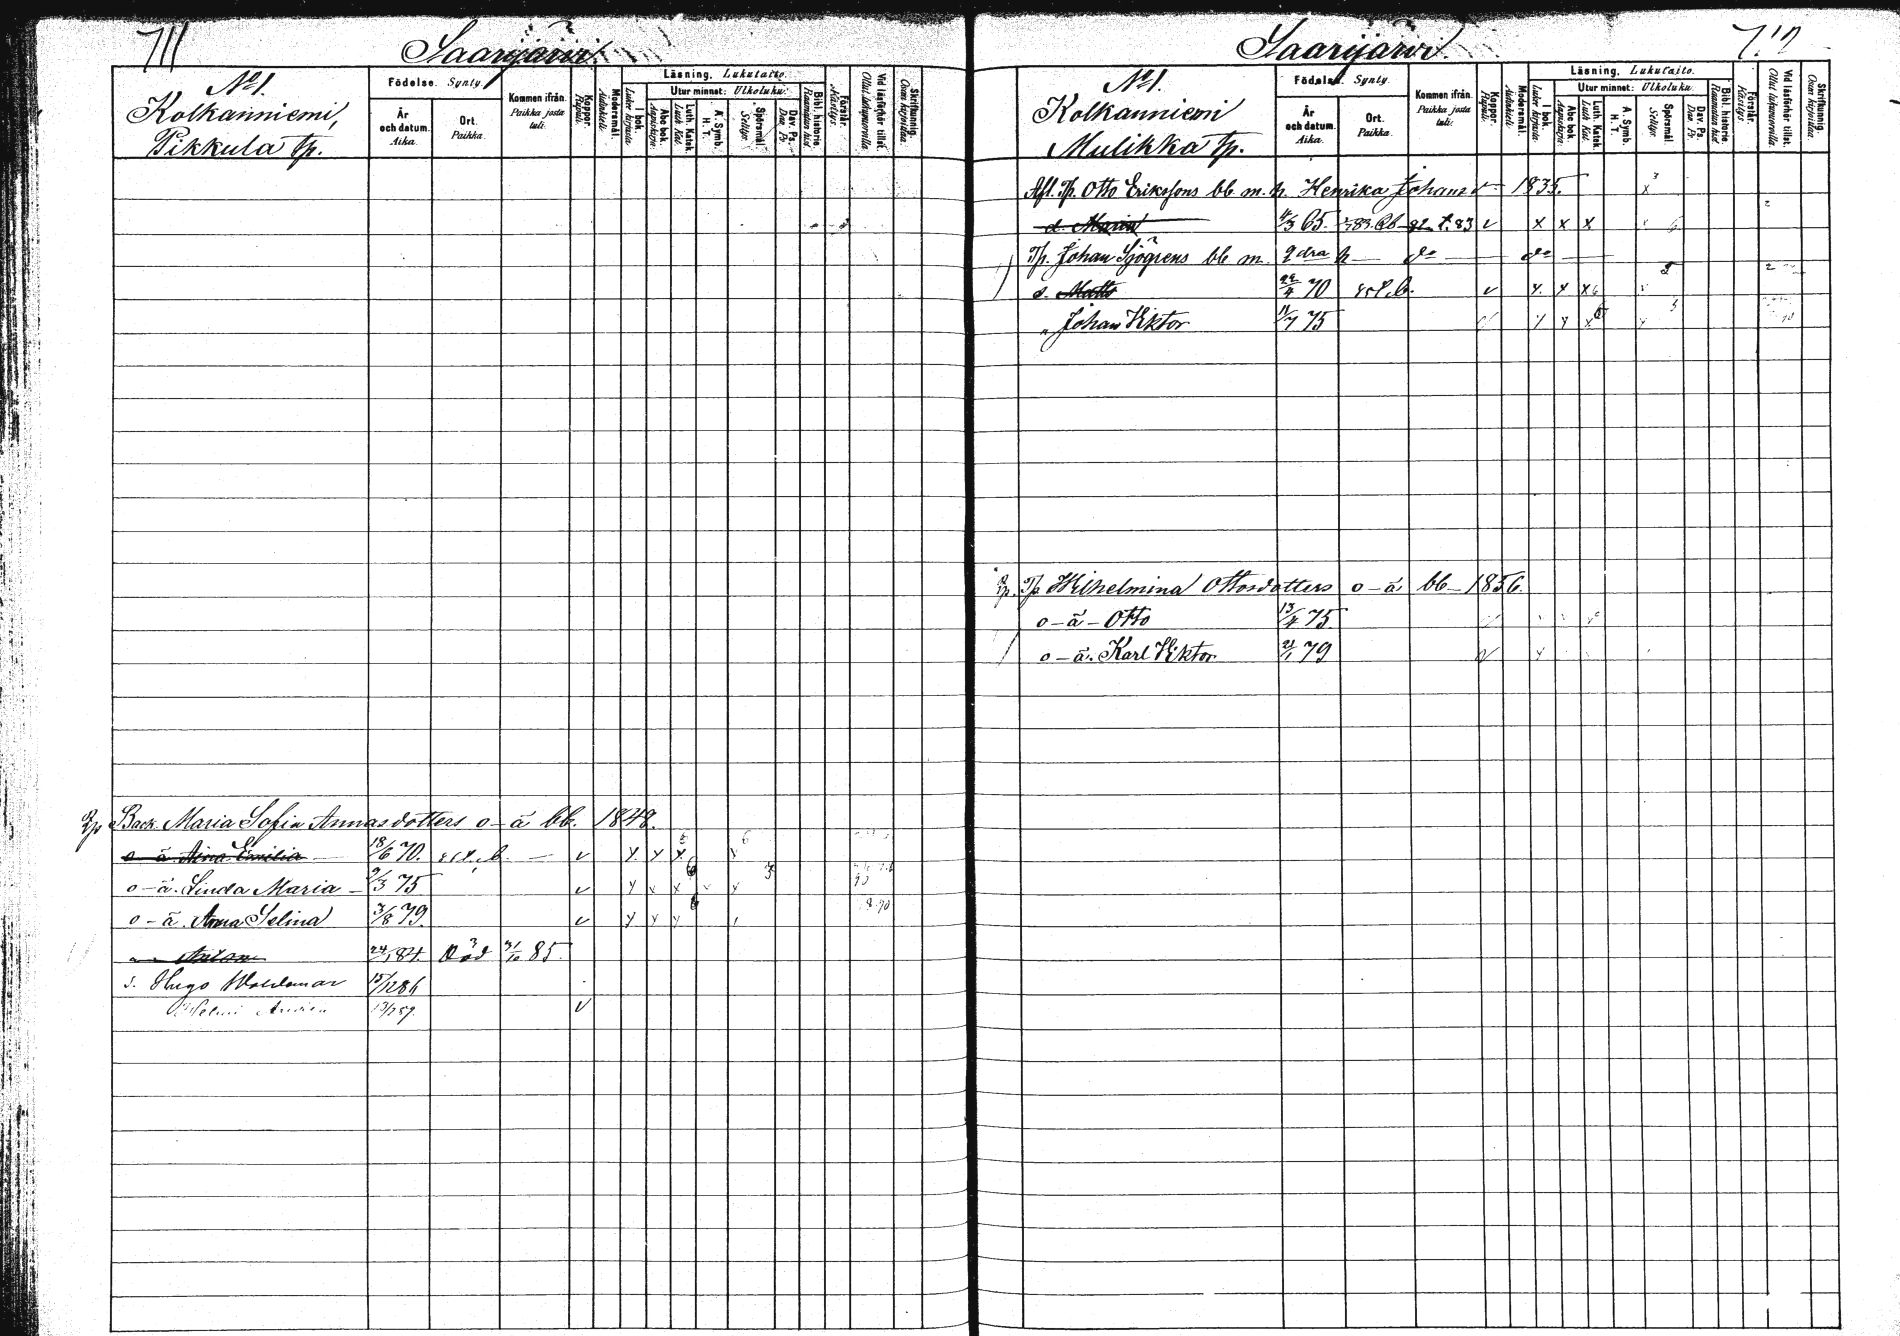 711
Saarijärvi
No 1.
Kolkanniemi,
Pikkula tp.
Födelse. Synty.
År och datum. Aika.
Ort. Paikka.
Kommen ifrån. Paikka josta tuli.
Koppor. Rupuli.
Modersmål. Äidinkieli.
Läsning. Lukutaito.
I bok. Luker kirjasta.
Utur minnet: Ulkoluku:
Abc bok. Aapiskirja.
Luth. Katek. Luth. Kat.
A. Symb. H. T.
Spörsmål Selitys.
Dav. Ps. Dav. Ps.
Bibl. historie. Raamatun hist.
Förstår. Käsitys.
Vid läsförhör tillst. Ollut lukuvuorolla.
Skriftkunnig. Osaa kirjoittaa.
Back. Maria Sofia Annasdotters o-ä bb. 1848.
o-ä. Aina Emilia 18/6 70. v x x x
o-ä. Linda Maria 9/3 75 v x x x x x
o-ä. Anna Selina 3/8 79. v x x x
Anton 24/1 84. Död 31/10 85.
s. Hugo Woldemar 15/12 86
v
Saarijärvi
No 1.
Kolkanniemi
Mulikka tp.
Födelse. Synty.
År och datum. Aika.
Ort. Paikka.
Kommen ifrån. Paikka josta tuli.
Koppor. Rupuli.
Modersmål. Äidinkieli.
Läsning. Lukutaito.
I bok. Luker kirjasta.
Utur minnet: Ulkoluku:
Abc bok. Aapiskirja.
Luth. Katek. Luth. Kat.
A. Symb. H. T.
Spörsmål Selitys.
Dav. Ps. Dav. Ps.
Bibl. historie. Raamatun hist.
Förstår. Käsitys.
Vid läsförhör tillst. Ollut lukuvuorolla.
Skriftkunnig. Osaa kirjoittaa.
Afl. Tp. Otto Erikssons bb m. h. Henrika Johansd 1835. x
d. Maria 4/3 65. v x x x
Tp. Johan Sjögrens bb m. 2dra h do do
s. Matts 22/4 70 v x x x
" Johan Viktor 11/7 75 v x x x
Tp. Wilhelmina Ottosdotters o-ä bb 1856.
o-ä Otto 13/4 75
o-ä. Karl Viktor 21/1 79 v x